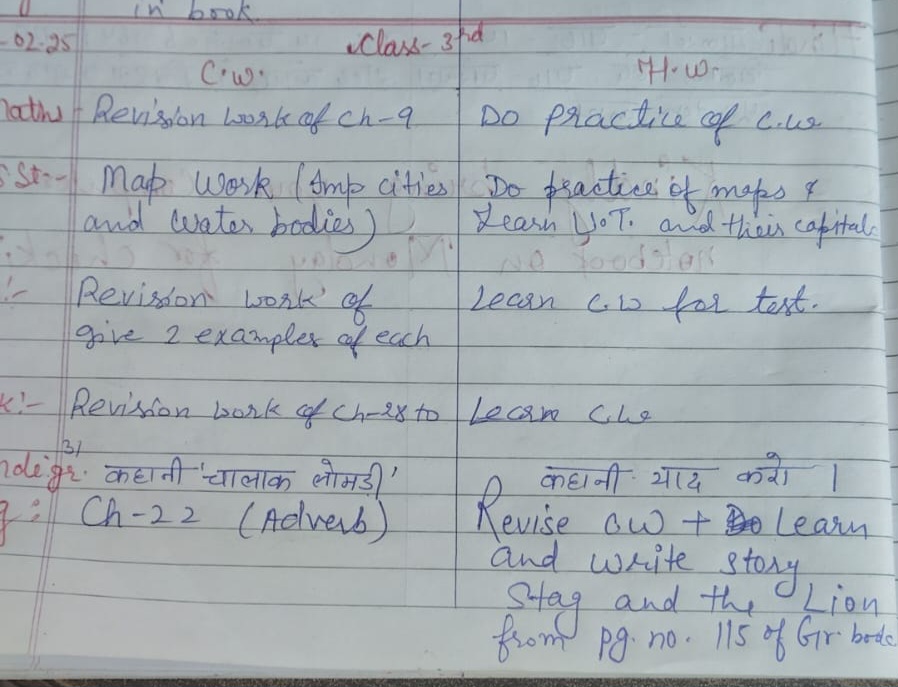 in book
-02.25 Class-3rd
C.W. H.W.
Maths Revision work of Ch-9 Do practice of C.W
S St:- Map Work (Imp cities Do practice of maps &
and water bodies) Learn U.T. and their capital
:- Revision work of Learn C.W for test.
give 2 examples of each
k:- Revision work of Ch-28 to Learn C.W
31
ndi gr. कहानी 'चालाक लोमडी' कहानी याद करो ।
g: Ch-22 (Adverb) Revise C.W + Learn
and write story
Stag and the Lion
from pg. no. 115 of Gr. book